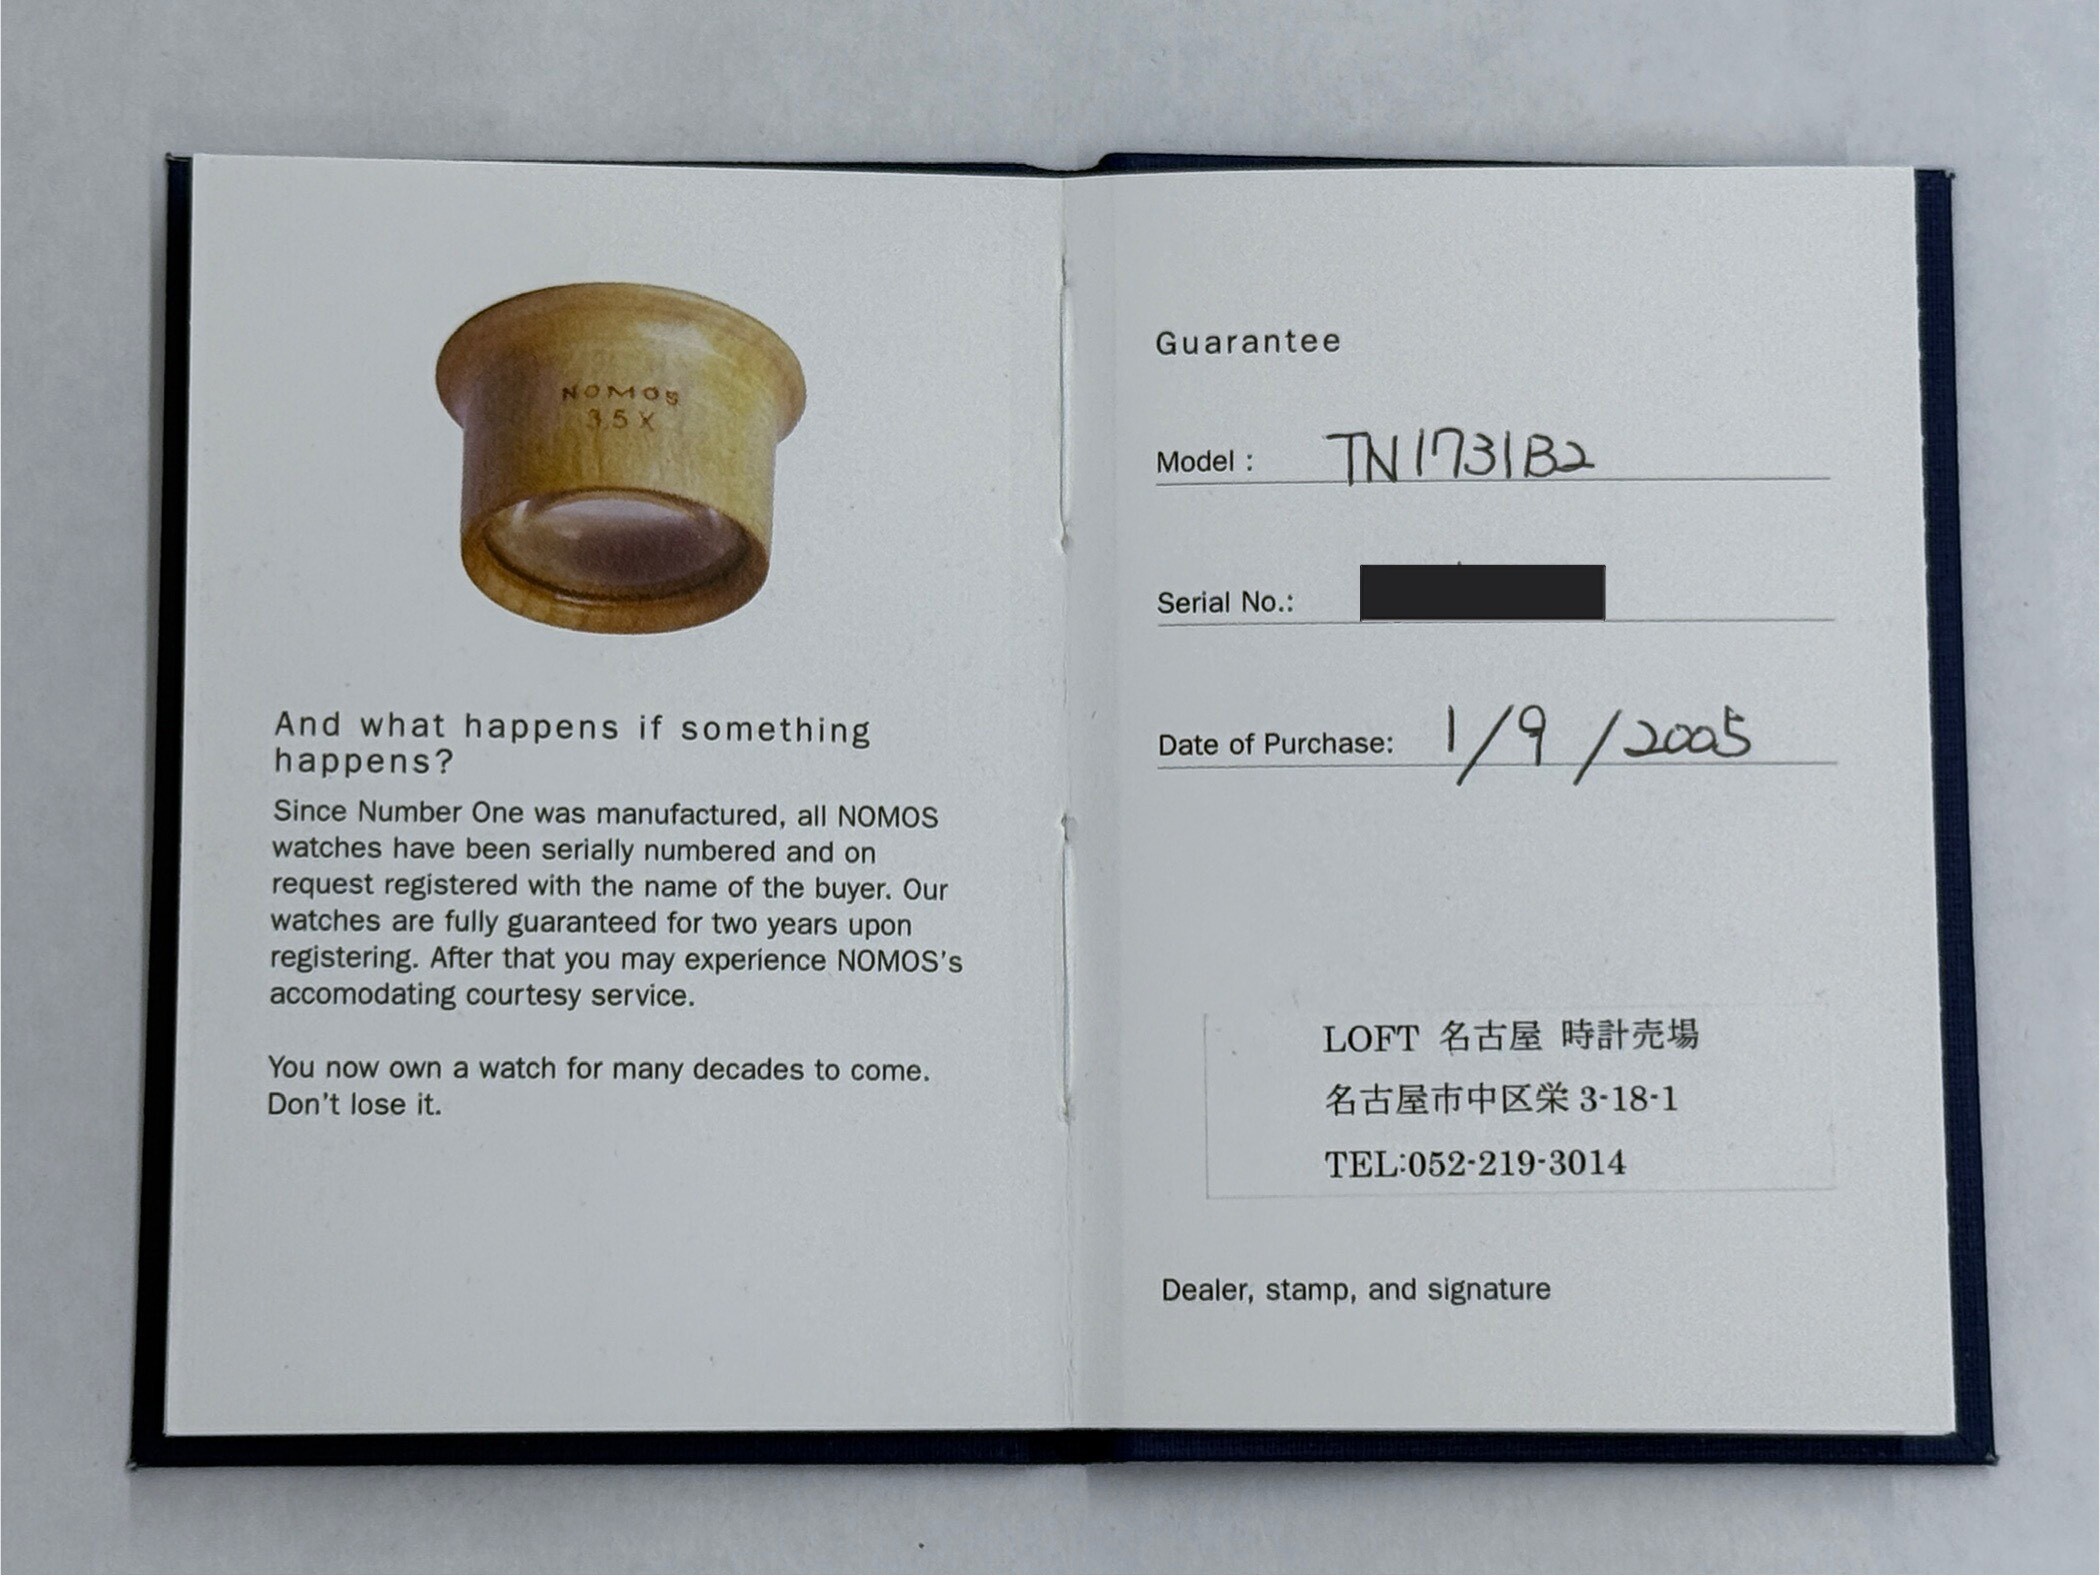 NOMOS
3,5 X
And what happens if something
happens?
Since Number One was manufactured, all NOMOS
watches have been serially numbered and on
request registered with the name of the buyer. Our
watches are fully guaranteed for two years upon
registering. After that you may experience NOMOS's
accomodating courtesy service.
You now own a watch for many decades to come.
Don't lose it.
Guarantee
Model : TN1731B2
Serial No.:
Date of Purchase: 1/9/2005
LOFT 名古屋 時計売場
名古屋市中区栄 3-18-1
TEL:052-219-3014
Dealer, stamp, and signature